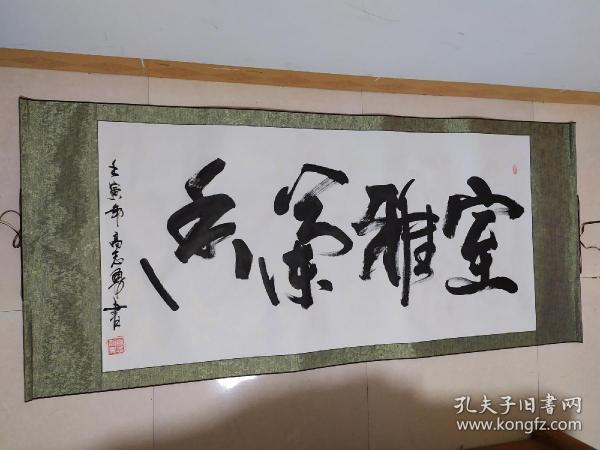 室雅兰香
壬寅年高志勇書
孔夫子旧书网
www.kongfz.com